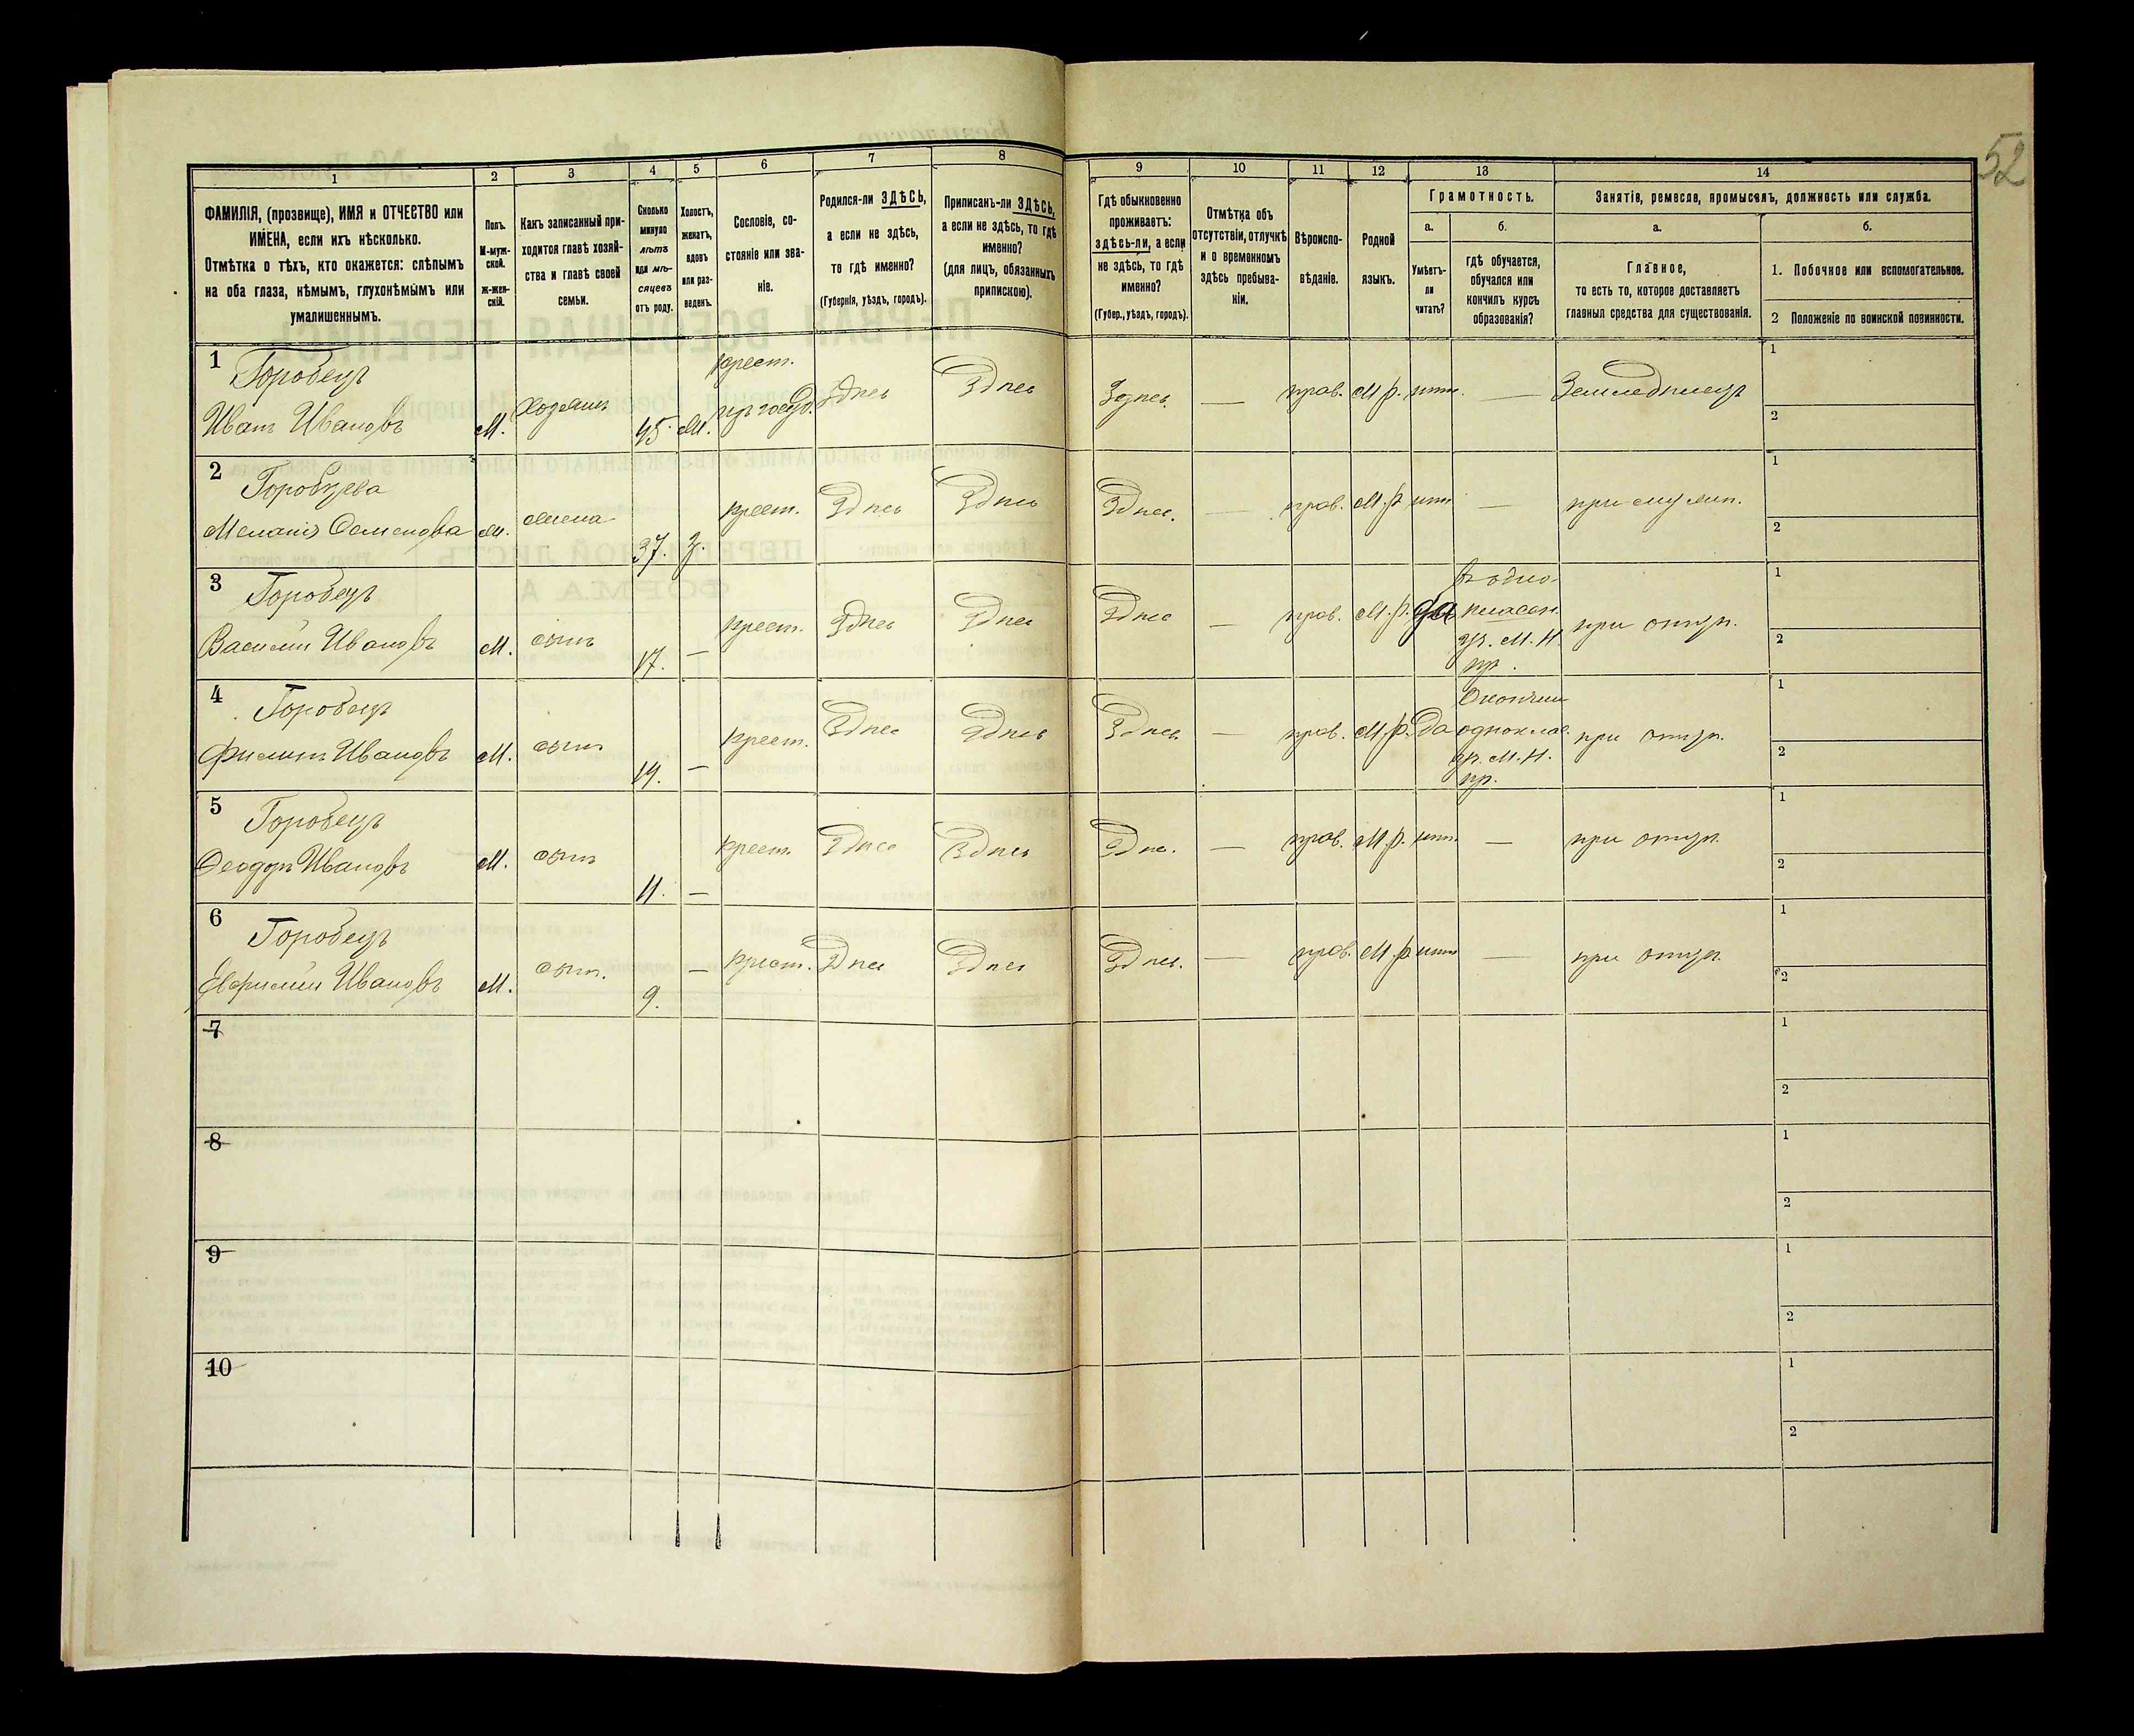 52
1
2
3
4
5
6
7
8
9
10
11
12
13
14
ФАМИЛІЯ, (прозвище), ИМЯ и ОТЧЕСТВО или
ИМЕНА, если ихъ нѣсколько.
Отмѣтка о тѣхъ, кто окажется: слѣпымъ
на оба глаза, нѣмымъ, глухонѣмымъ или
умалишеннымъ.
Полъ.
М-муж-
ской.
ж-жен-
скій.
Какъ записанный при-
ходится главѣ хозяй-
ства и главѣ своей
семьи.
Сколько
минуло
лѣтъ
или мѣ-
сяцевъ
отъ роду.
Холостъ,
женатъ,
вдовъ
или раз-
веденъ.
Сословіе, со-
стояніе или зва-
ніе.
Родился-ли ЗДѢСЬ,
а если не здѣсь,
то гдѣ именно?
(Губернія, уѣздъ, городъ).
Приписанъ-ли ЗДѢСЬ,
а если не здѣсь, то гдѣ
именно?
(для лицъ, обязанныхъ
припискою).
Гдѣ обыкновенно
проживаетъ:
здѣсь-ли, а если
не здѣсь, то гдѣ
именно?
(Губер., уѣздъ, городъ).
Отмѣтка объ
отсутствіи, отлучкѣ
и о временномъ
здѣсь пребыва-
ніи.
Вѣроиспо-
вѣданіе.
Родной
языкъ.
Грамотность.
а.
Умѣетъ-
ли
читать?
б.
гдѣ обучается,
обучался или
кончилъ курсъ
образованія?
Занятіе, ремесло, промыселъ, должность или служба.
а.
Главное,
то есть то, которое доставляетъ
главныя средства для существованія.
б.
1. Побочное или вспомогательное.
2 Положеніе по воинской повинности.
1
Горобецъ
Иванъ Ивановъ
М.
Хозяинъ
45.
крест.
Здѣсь
Здѣсь
Здѣсь.
—
прав.
М.р.
нѣт.
—
Земледѣлецъ
1
2
2
Горобцева
Меланія Семенова
жена
37.
крест.
Здѣсь
Здѣсь
Здѣсь.
—
прав.
М.р.
нѣт
—
при мужѣ.
1
2
3
Горобецъ
Василій Ивановъ
М.
сынъ
17.
—
крест.
Здѣсь
Здѣсь
Здѣсь
—
прав.
М.р.
да
в одно-
класн.
М. Н.
пр.
при отцѣ.
1
2
4
Горобецъ
Филипъ Ивановъ
М.
сынъ
—
крест.
Здѣсь
Здѣсь
Здѣсь
—
прав.
М.р.
Да
Окончил
однокла.
М. Н.
пр.
при отцѣ.
1
2
5
Горобецъ
Феодоръ Ивановъ
М.
сынъ
11.
—
крест.
Здѣсь
Здѣсь
Здѣс.
—
прав.
М.р.
нѣт.
—
при отцѣ.
1
2
6
Горобецъ
Евфимій Ивановъ
М.
сынъ.
9.
—
крест.
Здѣсь
Здѣсь
Здѣсь.
—
прав.
М.р.
нѣт
—
при отцѣ.
1
2
7
1
2
8
1
2
9
1
2
10
1
2